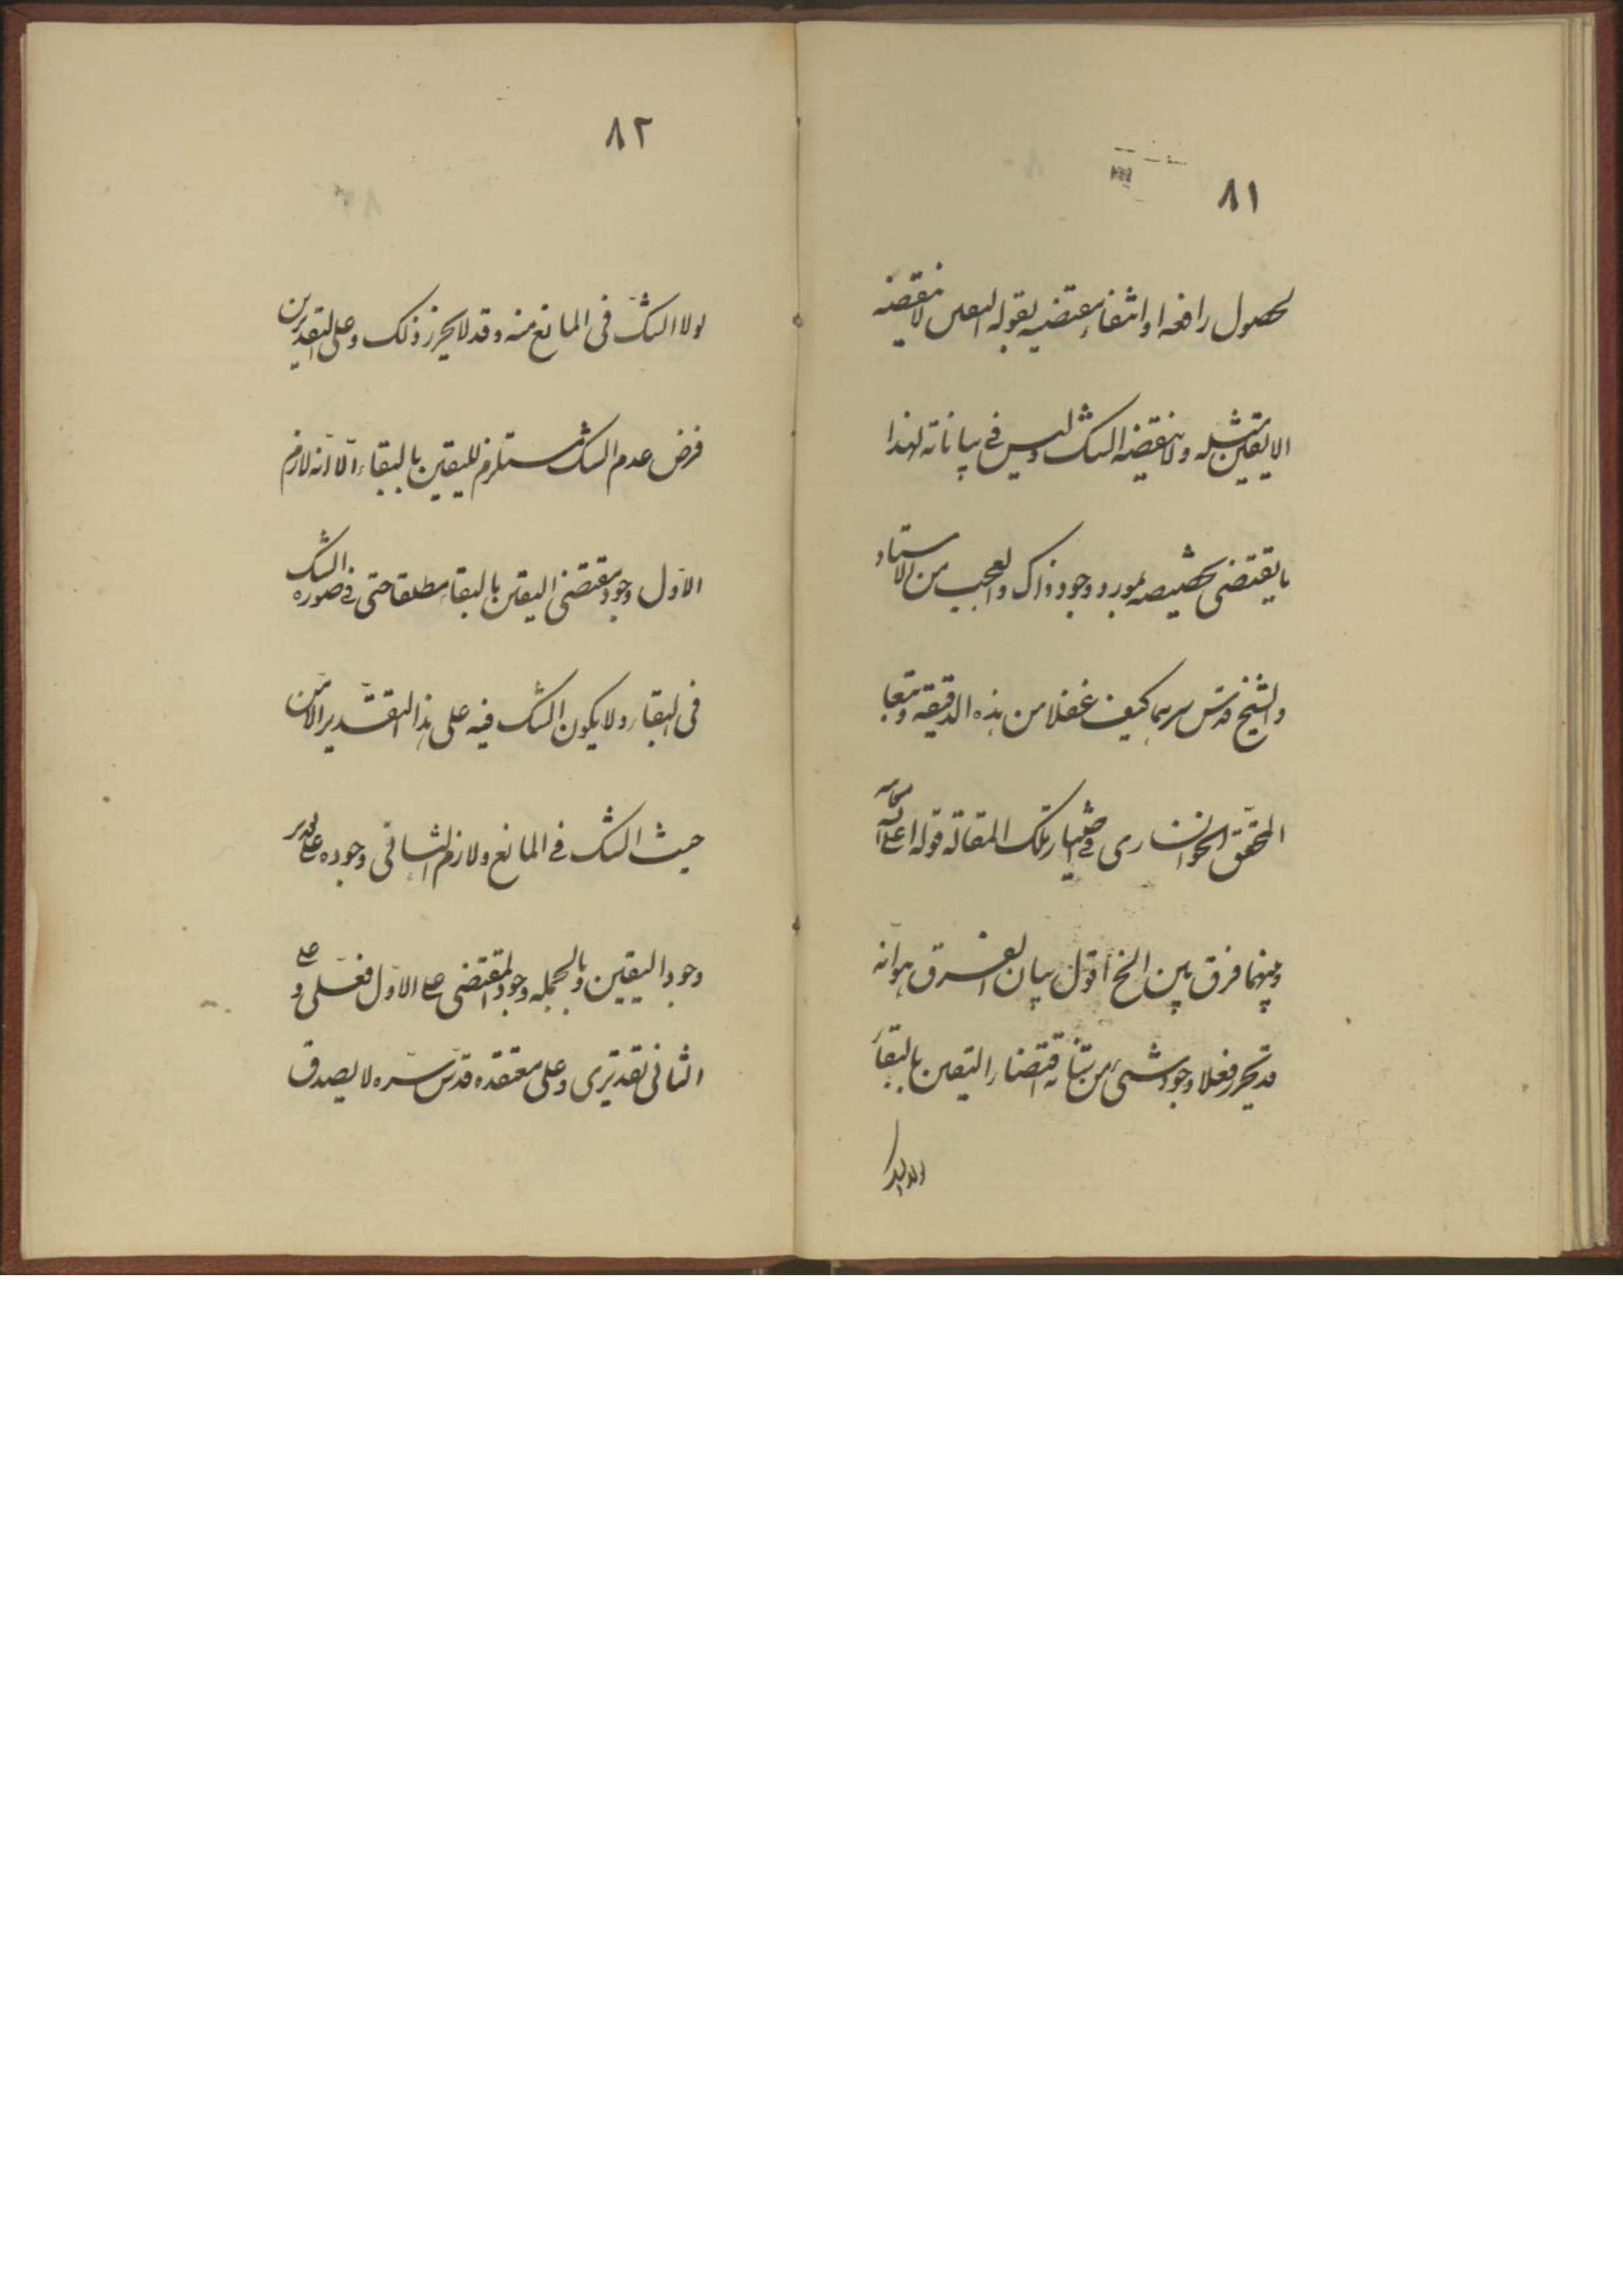 ٨١
لحصول رافعه او انتفاء مقتضيه بقوله اليقين لا ينقضه
الا يقين مثله ولا ينقضه الشك وليس فى بياناته لهذا
ما يقتضى تخصيصه بمورد وجود ذاك والعجب من الاستاد
والشيخ قدس سرهما كيف غفلا من هذه الدقيقه وتبعا
المحقق الخوانسارى فى اختيار تلك المقاله قوله اعلى الله مقامه
وبينهما فرق بين الخ اقول بيان الفرق هو انه
قد يحرز فعلا وجود شىء من شانه اقتضاء اليقين بالبقاء
لولا الشك
٨٢
لولا الشك فى المانع منه وقد لا يحرز ذلك وعلى التقديرين
فرض عدم الشك مستلزم لليقين بالبقاء الّا انّه لازم
الاوّل وجود مقتضى اليقين بالبقاء مطلقا حتى فى صوره الشك
فى البقاء ولا يكون الشك فيه على هذا التقدير الا من
حيث الشك فى المانع ولازم الثانى وجوده على تقدير
وجود اليقين وبالجمله وجود المقتضى على الاوّل فعلى و على
الثانى تقديرى وعلى معتقده قدّس سرّه لا يصدق